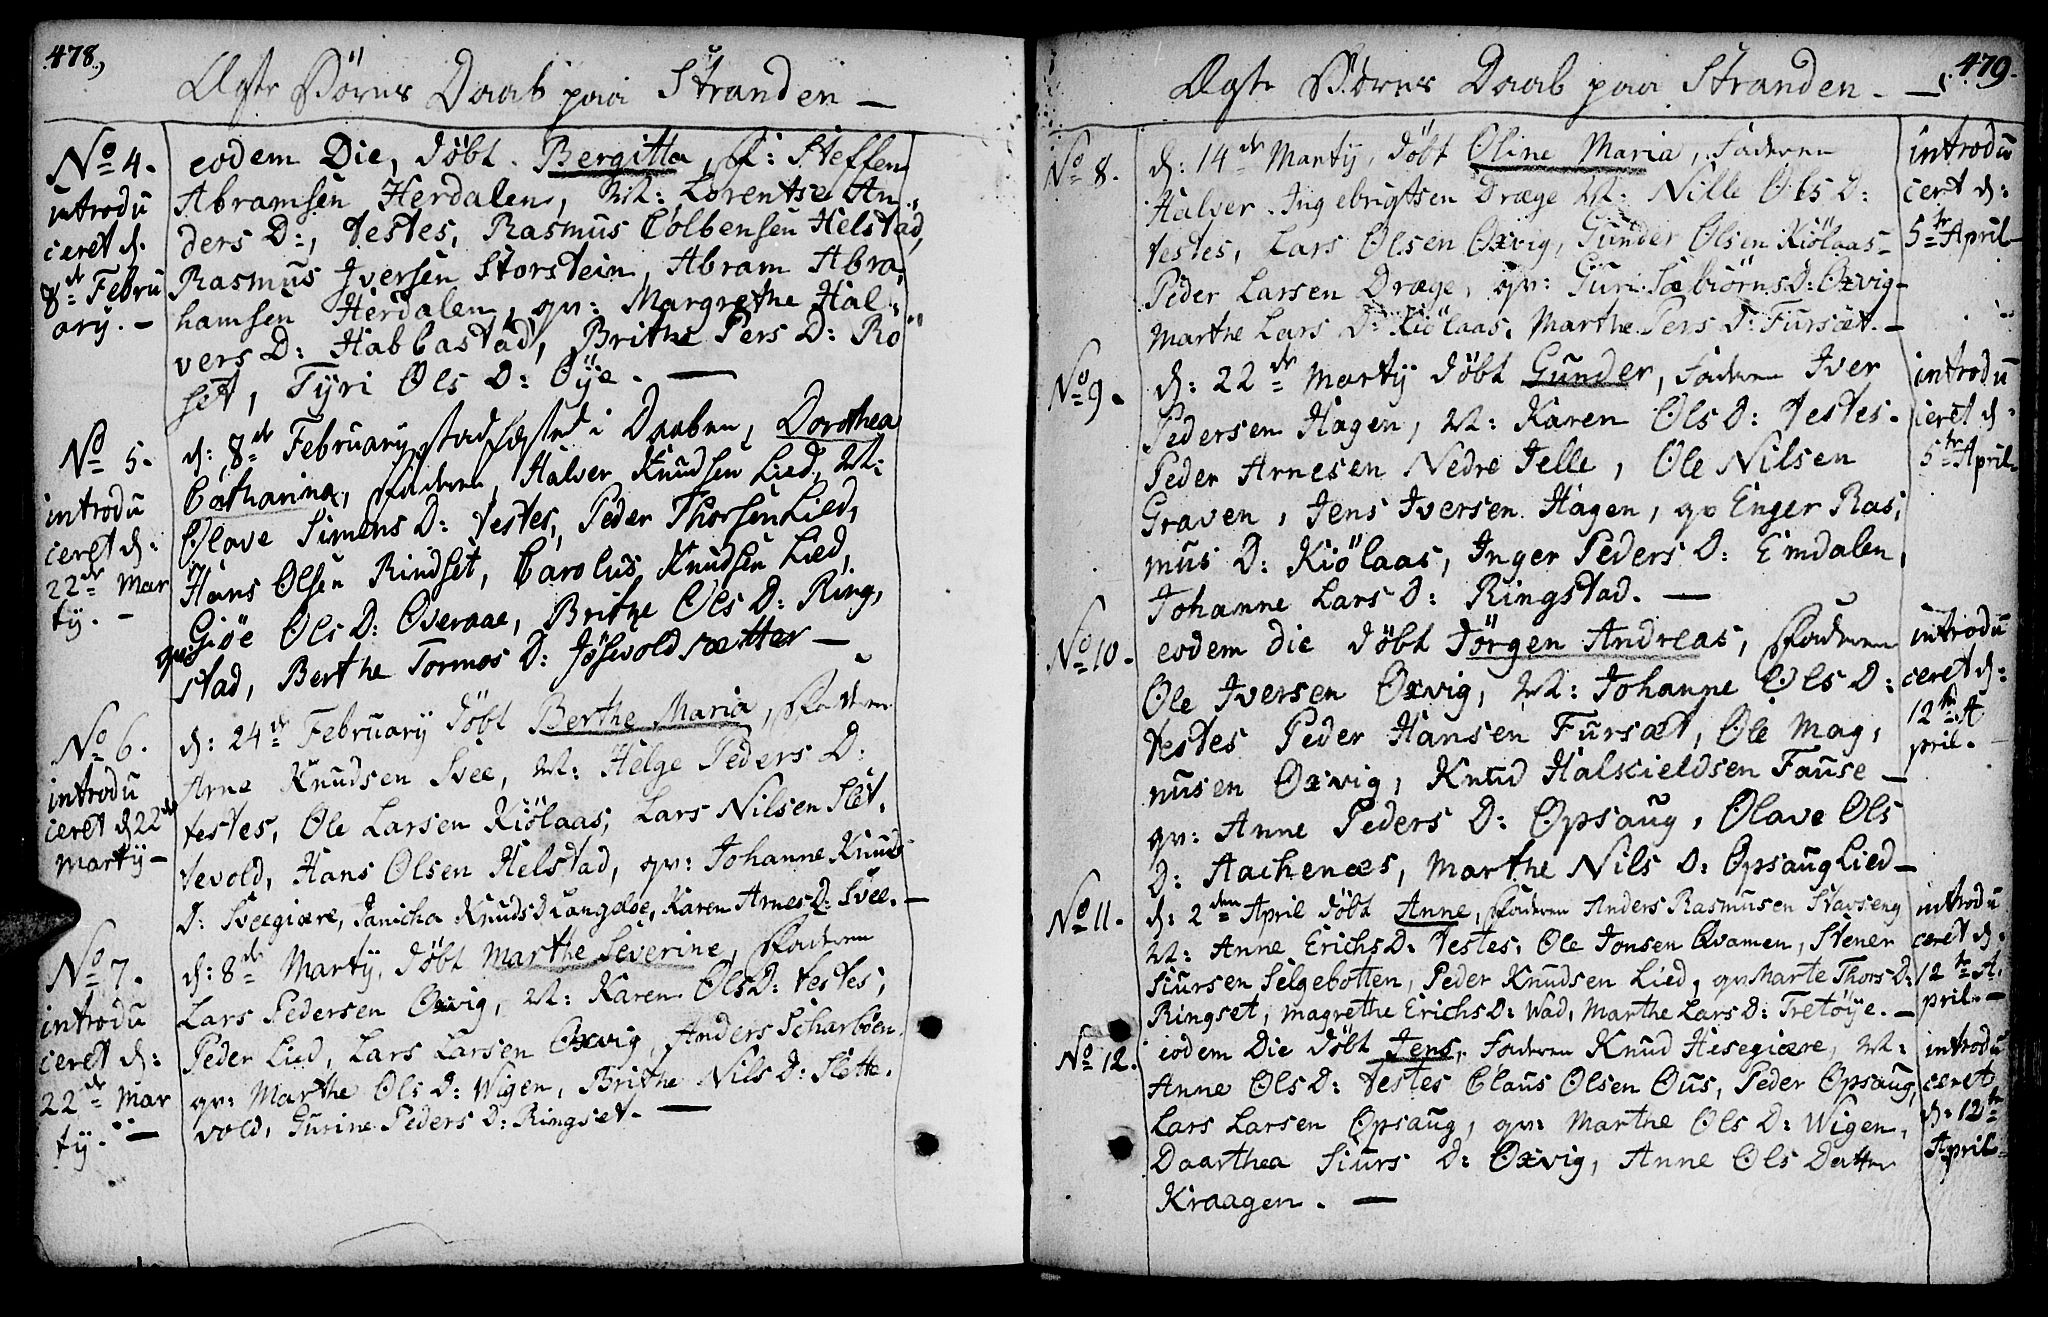 478,
Ægte Børns Daab paa Stranden —
No 4.
introdu
ceret d.
8de Febru
ary. —
eodem Die, døbt. Bergitta, F: Steffen
Abramsen Herdalen, M: Lorentse An„
ders D:, testes, Rasmus Colbensen Helstad,
Rasmus Iversen Storstein, Abram Abra,
hamsen Herdalen, qv: Margrethe Hal„
vers D: Habbastad, Brithe Pers D: Rö„
set, Tyri Ols D: Öÿe. —
No 5.
introdu
ceret d:
22de Mar
tÿ. —
d: 8de February stadfæsted i Daaben, Dorothea
Catharina, Faderen, Halver Knudsen Lied, M:
Olave Simens D: testes, Peder Thorsen Lied,
Hans Olsen Rindset, Carolus Knudsen Lied,
qv: Giøe Ols D: Overaae, Brithe Ols D: Ring,
stad, Berthe Tormos D: Jösevold sætter —
No 6.
introdu
ceret d 22de
Martÿ —
d: 24de February döbt Berthe Maria, Faderen
Arne Knudsen Svee, M: Helge Peders D:
testes, Ole Larsen Kiölaas, Lars Nilsen Slet,
tevold, Hans Olsen Helstad, qv: Johanne Knuds
D: Sveegiære, Janicha Knuds D Langeløe, Karen Arnes D: Svee. —
No 7.
introdu
ceret d:
22de Mar
tÿ. —
d: 8de Martÿ, döbt Marthe Severine, Faderen
Lars Pedersen Oxvig, M: Karen Ols D: testes,
Peder Lied, Lars Larsen Oxvig, Anders Scharbøen.
qv: Marthe Ols D: Wigen, Brithe Nils D: Slette,
vold, Gurine Peders D: Ringset. —
479.
Ægte Børns Daab paa Stranden. —
No 8.
d: 14de Martÿ, döbt Oline Maria, Faderen
Halver Ingebrigtsen Dræge M: Nille Ols D:
testes, Lars Olsen Oxvig, Gunder Olsen Kiölaas
Peder Larsen Dræge, qv: Guri Sæbiörns D: Oxvig
Marthe Lars D: Kiölaas, Marthe Pers D: Fursæt. —
introdu
ceret d:
5te April
No 9.
d: 22de Martÿ döbt Gunder, Faderen Iver
Pedersen Hagen, M: Karen Ols D: testes.
Peder Arnesen Nedre Jelle, Ole Nilsen
Graven, Jens Iversen Hagen, qv Enger Ras,
mus D: Kiölaas, Inger Peders D: Emdalen,
Johanne Lars D: Ringstad. —
introdu
ceret d.
5te April.
No 10.
eodem die döbt Jörgen Andreas, Faderen
Ole Iversen Oxvig, M: Johanne Ols D:
testes Peder Hansen Fursæt, Ole Mag,
nusen Oxvig, Knud Halskieldsen Fause —
qv: Anne Peders D: Opsaug, Olave Ols
D: Aachenæs, Marthe Nils D: Opsaug Lied —
introdu
ceret d:
12te A
pril.
No 11.
d: 2den April döbt Anne, Faderen Anders Rasmusen Stavseng
M: Anne Erichs D: testes, Ole Jonsen Qvamen, Stener
Siursen Selgebotten, Peder Knudsen Lied, qv: Marte Thors D:
Ringset, Magrethe Erichs D: Wad, Marthe Lars D: Tretöÿe. —
introdu
ceret d.
12te A,
pril. —
No 12.
eodem Die döbt Jens, Faderen Knud Hesegiære, M:
Anne Ols D: testes Claus Olsen Ous, Peder Opsaug,
Lars Larsen Opsaug, qv: Marthe Ols D: Wigen,
Daarthea Siurs D: Oxvig, Anne Ols Datter
Kraagen. —
introdu
ceret
d: 12te
April